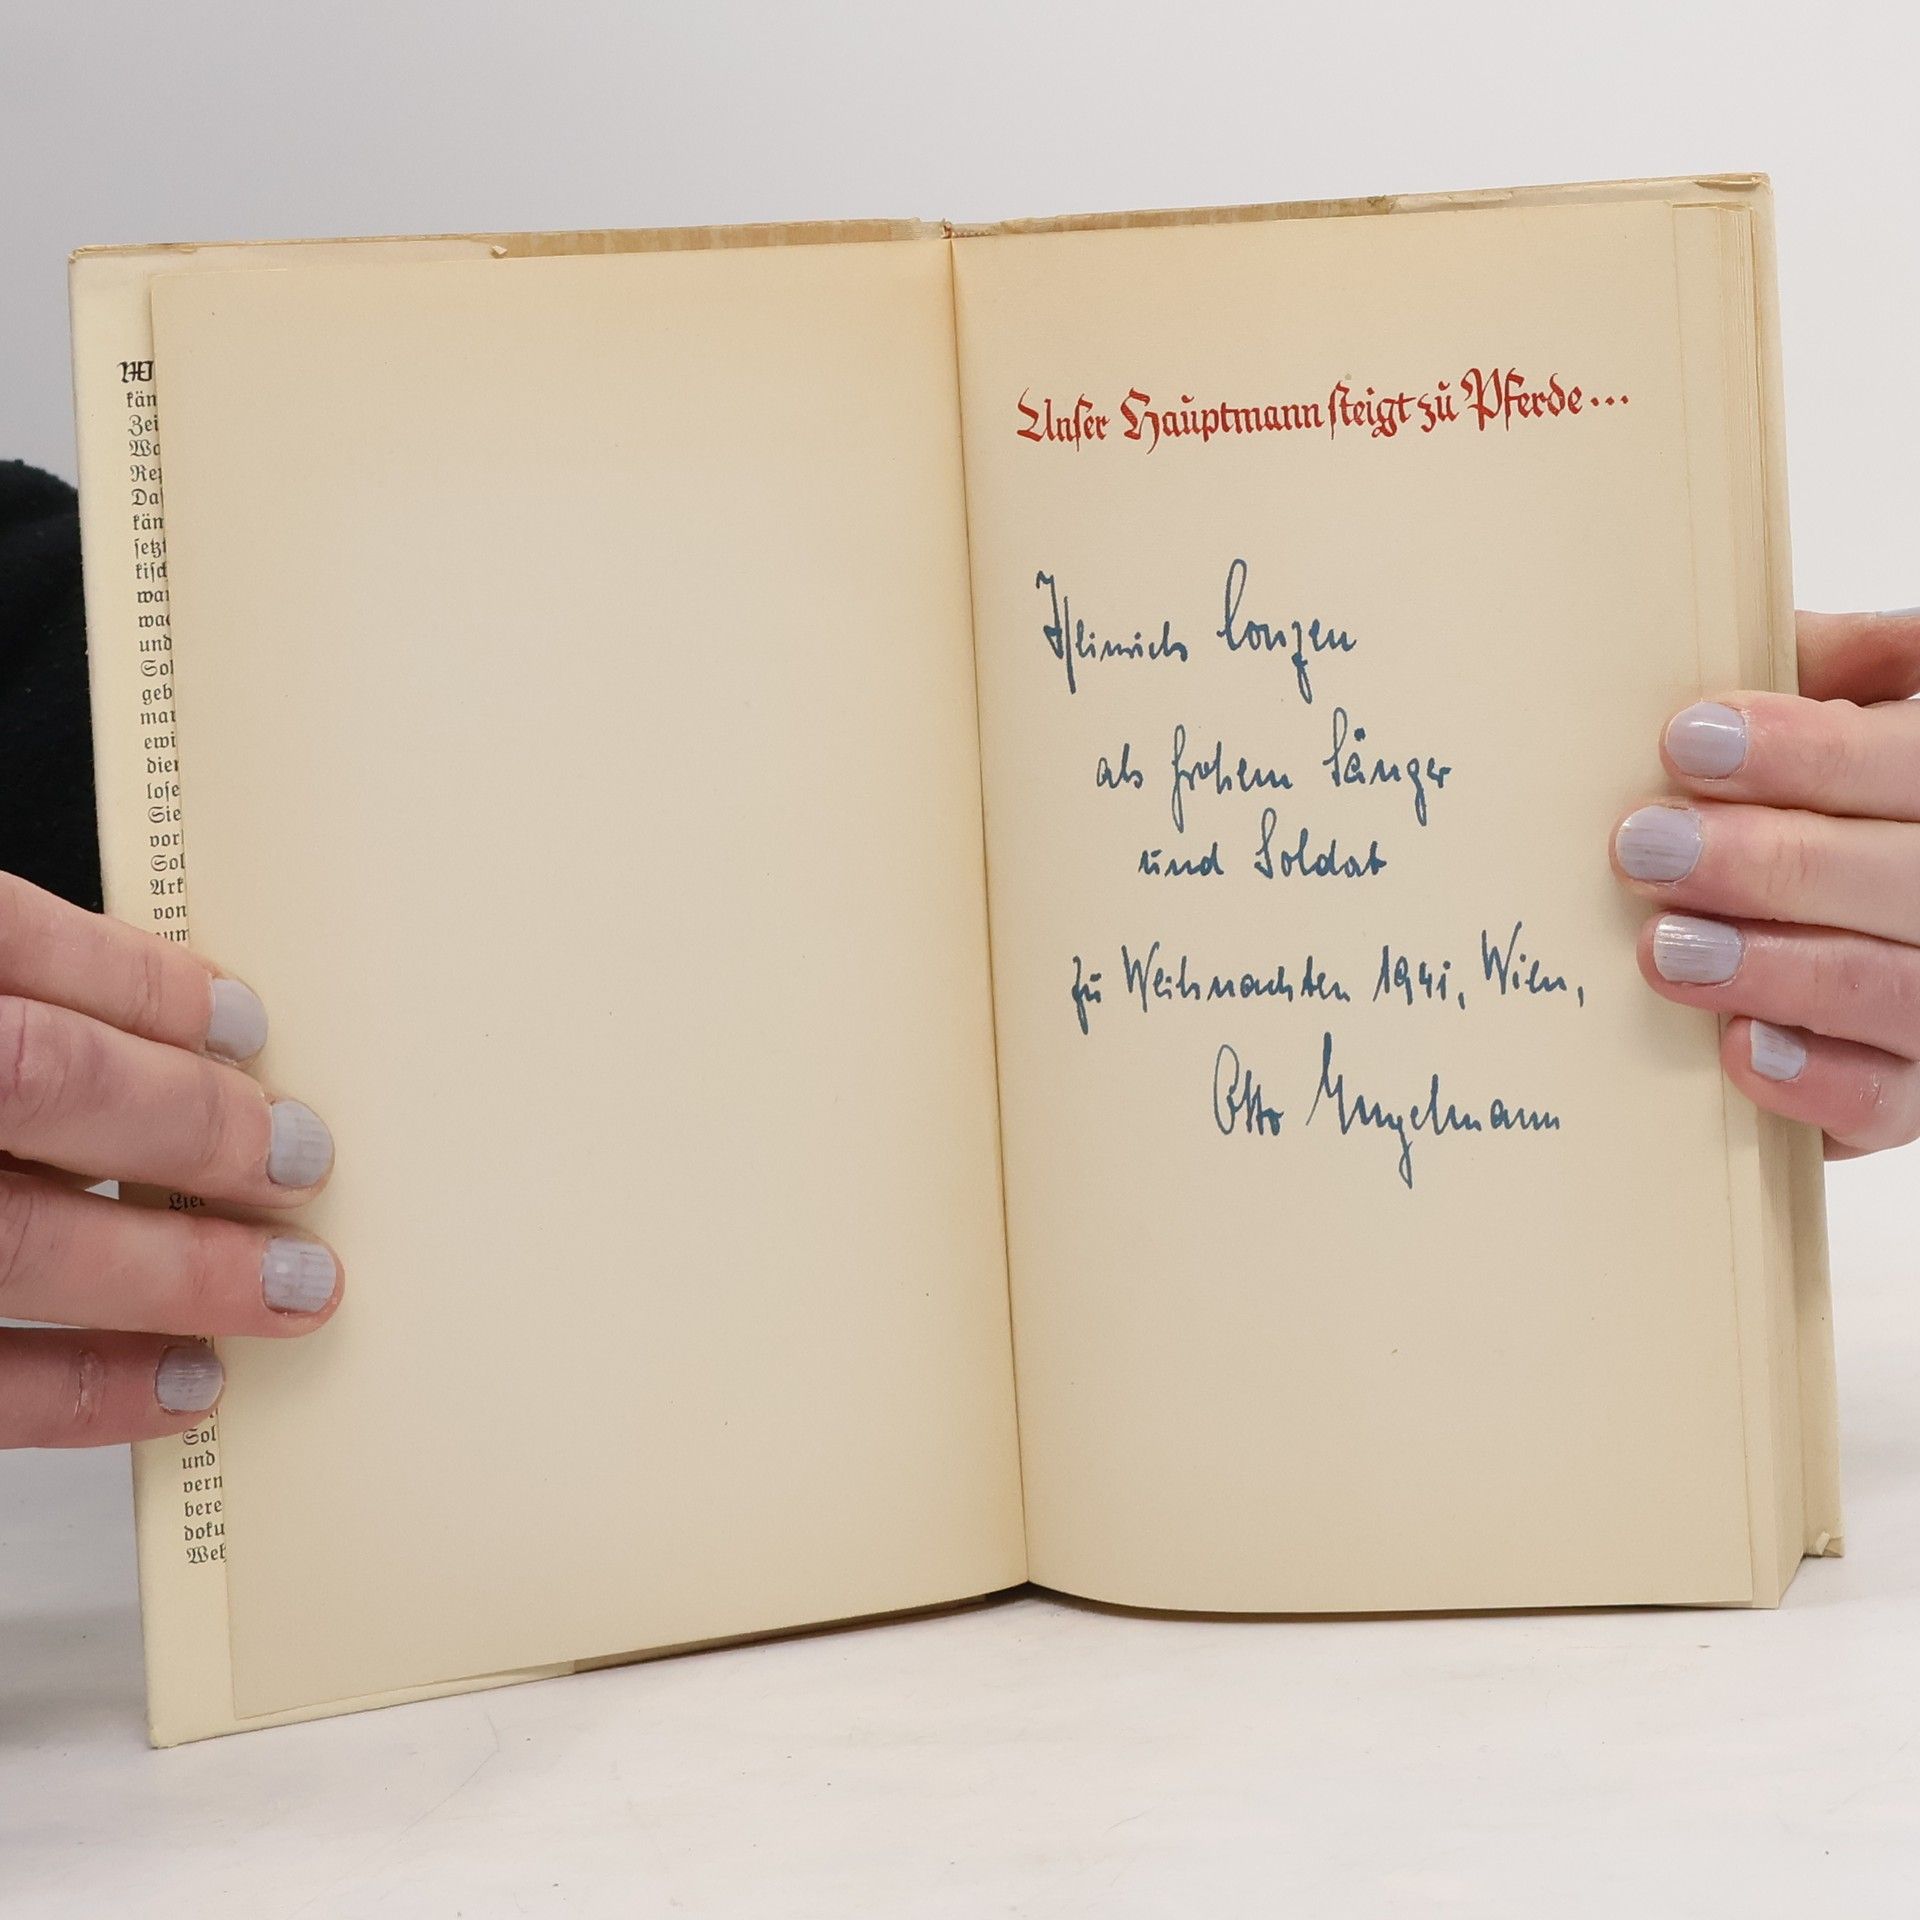 W
kän
Zei
Wo
Rep
Daß
kän
setzt
kisch
wan
wac
und
Sol
geb
man
ewi
dien
lose
Sie
vor
Sol
Ark
von
Lie
Sol
und
vern
bere
doku
Weh
Unser Hauptmann steigt zu Pferde...
Heinrich Conzen
als frohem Sänger
und Soldat
zu Weihnachten 1941, Wien,
Otto Engelmann